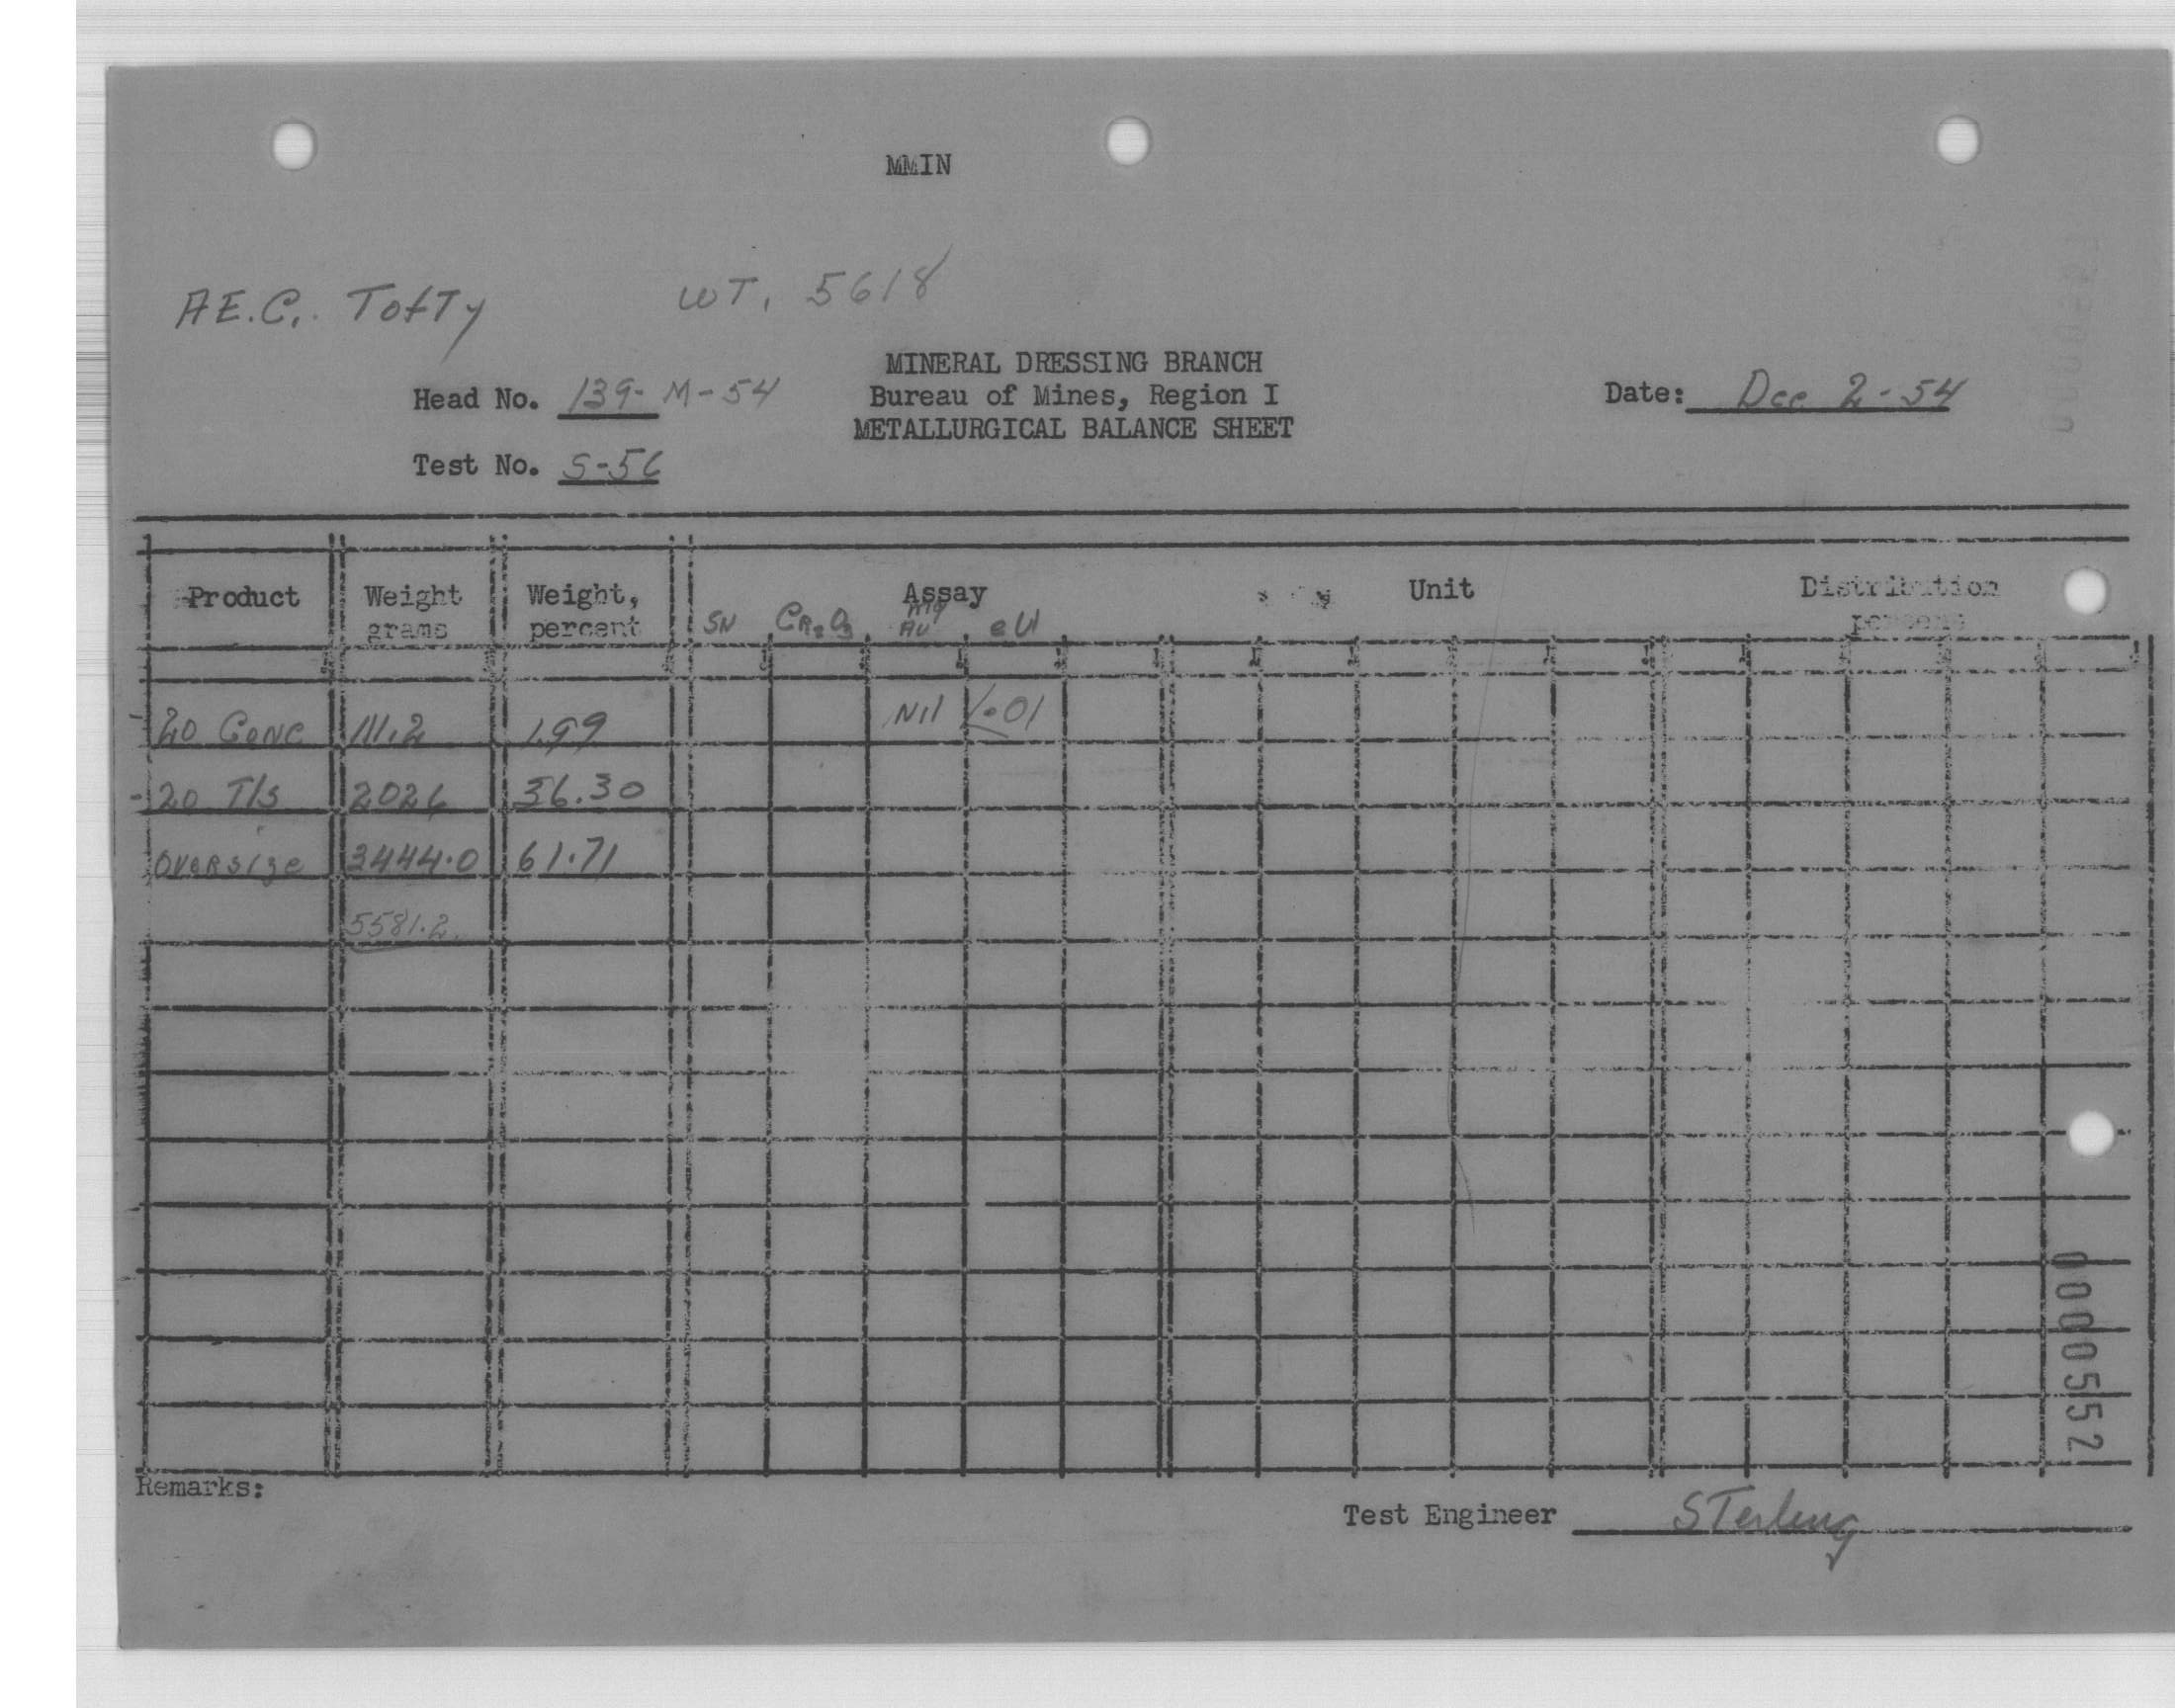 MMIN
A.E.C. Tofty WT. 5618
MINERAL DRESSING BRANCH
Head No. 139-M-54 Bureau of Mines, Region I Date: Dec 2-54
METALLURGICAL BALANCE SHEET
Test No. S-56
Product Weight grams Weight, percent Assay Unit Distribution percent
SN CR2O3 Mg AU eU
-20 Conc 111.2 1.99 Nil <.01
-20 T/s 2026 36.30
Oversize 3444.0 61.71
5581.2
0000552
Remarks:
Test Engineer Sterling